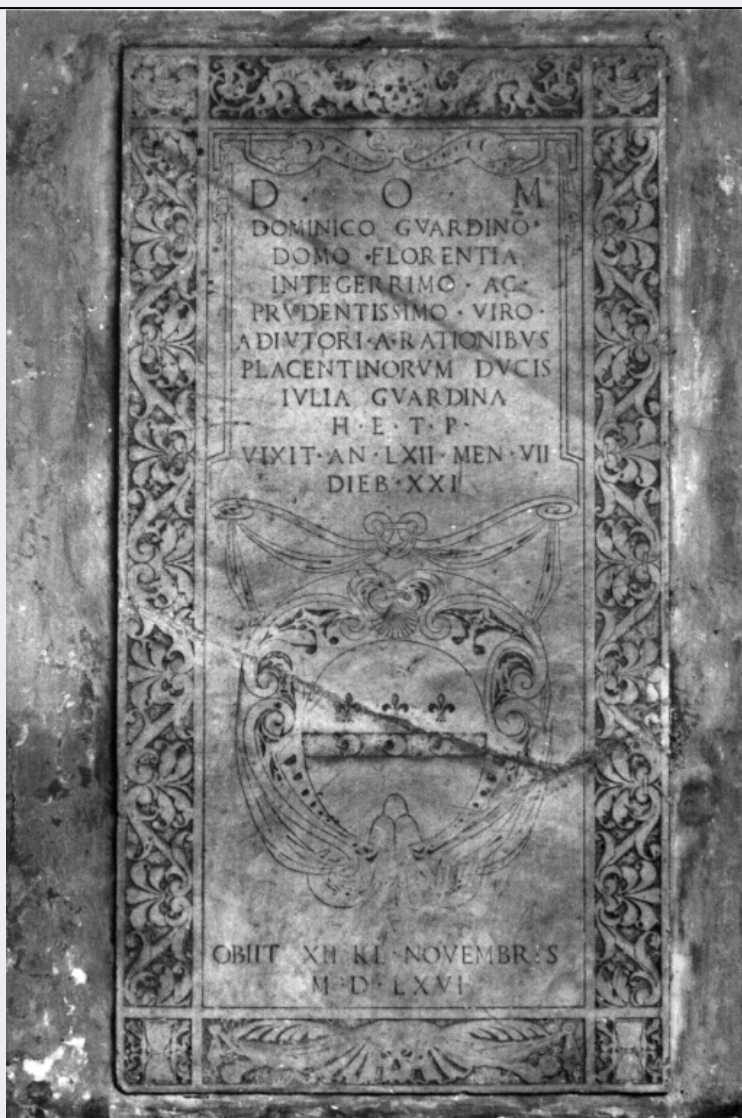 D · O · M
DOMINICO GVARDINO ·
DOMO · FLORENTIA
INTEGERRIMO · AC ·
PRVDENTISSIMO · VIRO ·
ADIVTORI · A · RATIONIBVS
PLACENTINORVM DVCIS
IVLIA GVARDINA
H · E · T · P ·
VIXIT · AN · LXII · MEN · VII
DIEB · XXI
OBIIT XII KL · NOVEMBRIS
M · D · LXVI